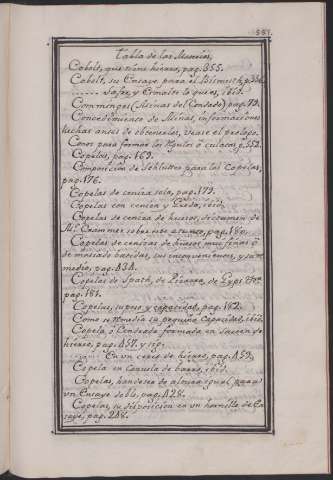 Tabla de las Materias,
Cobolt, que tiene hierro, pag. 355.
Cobolt, su Ensaye para el Bismuth, p. 356.
........ Safre, y Esmalte lo que es, ibid.
Comminges (Minas del Condado) pag. 73.
Concedimiento de Minas, informaciones
hechas antes de obtenerlos, vease el prologo.
Conos para formar los o culatas p. 552.
Copelas, pag. 169.
Composicion de Schlutter para las Copelas,
pag. 176.
Copelas de ceniza sola, pag. 179.
Copelas con ceniza y ibid.
Copelas de ceniza de huesos, dictamen de
Mr. Crammer sobre este asunto, pag. 180.
Copelas de cenizas de huesos muy finas ô
de masiado bastas, sus inconvenientes, y su re-
medio, pag. 434.
Copelas de Spath, de de Gyps &ca.
pag. 181.
Copelas, su peso y capacidad, pag. 182.
Como se remedia su pequeña Capacidad, ibid.
Copela ô Cendrada formada en de
hierro, pag. 457. y sig.
........ En un cerco de hierro, pag. 459.
Copela en cazuela de barro, ibid.
Copelas, han de ser de altura igual para
un Ensaye doble, pag. 428.
Copelas, su disposicion en un hornillo de En-
saye, pag. 248.